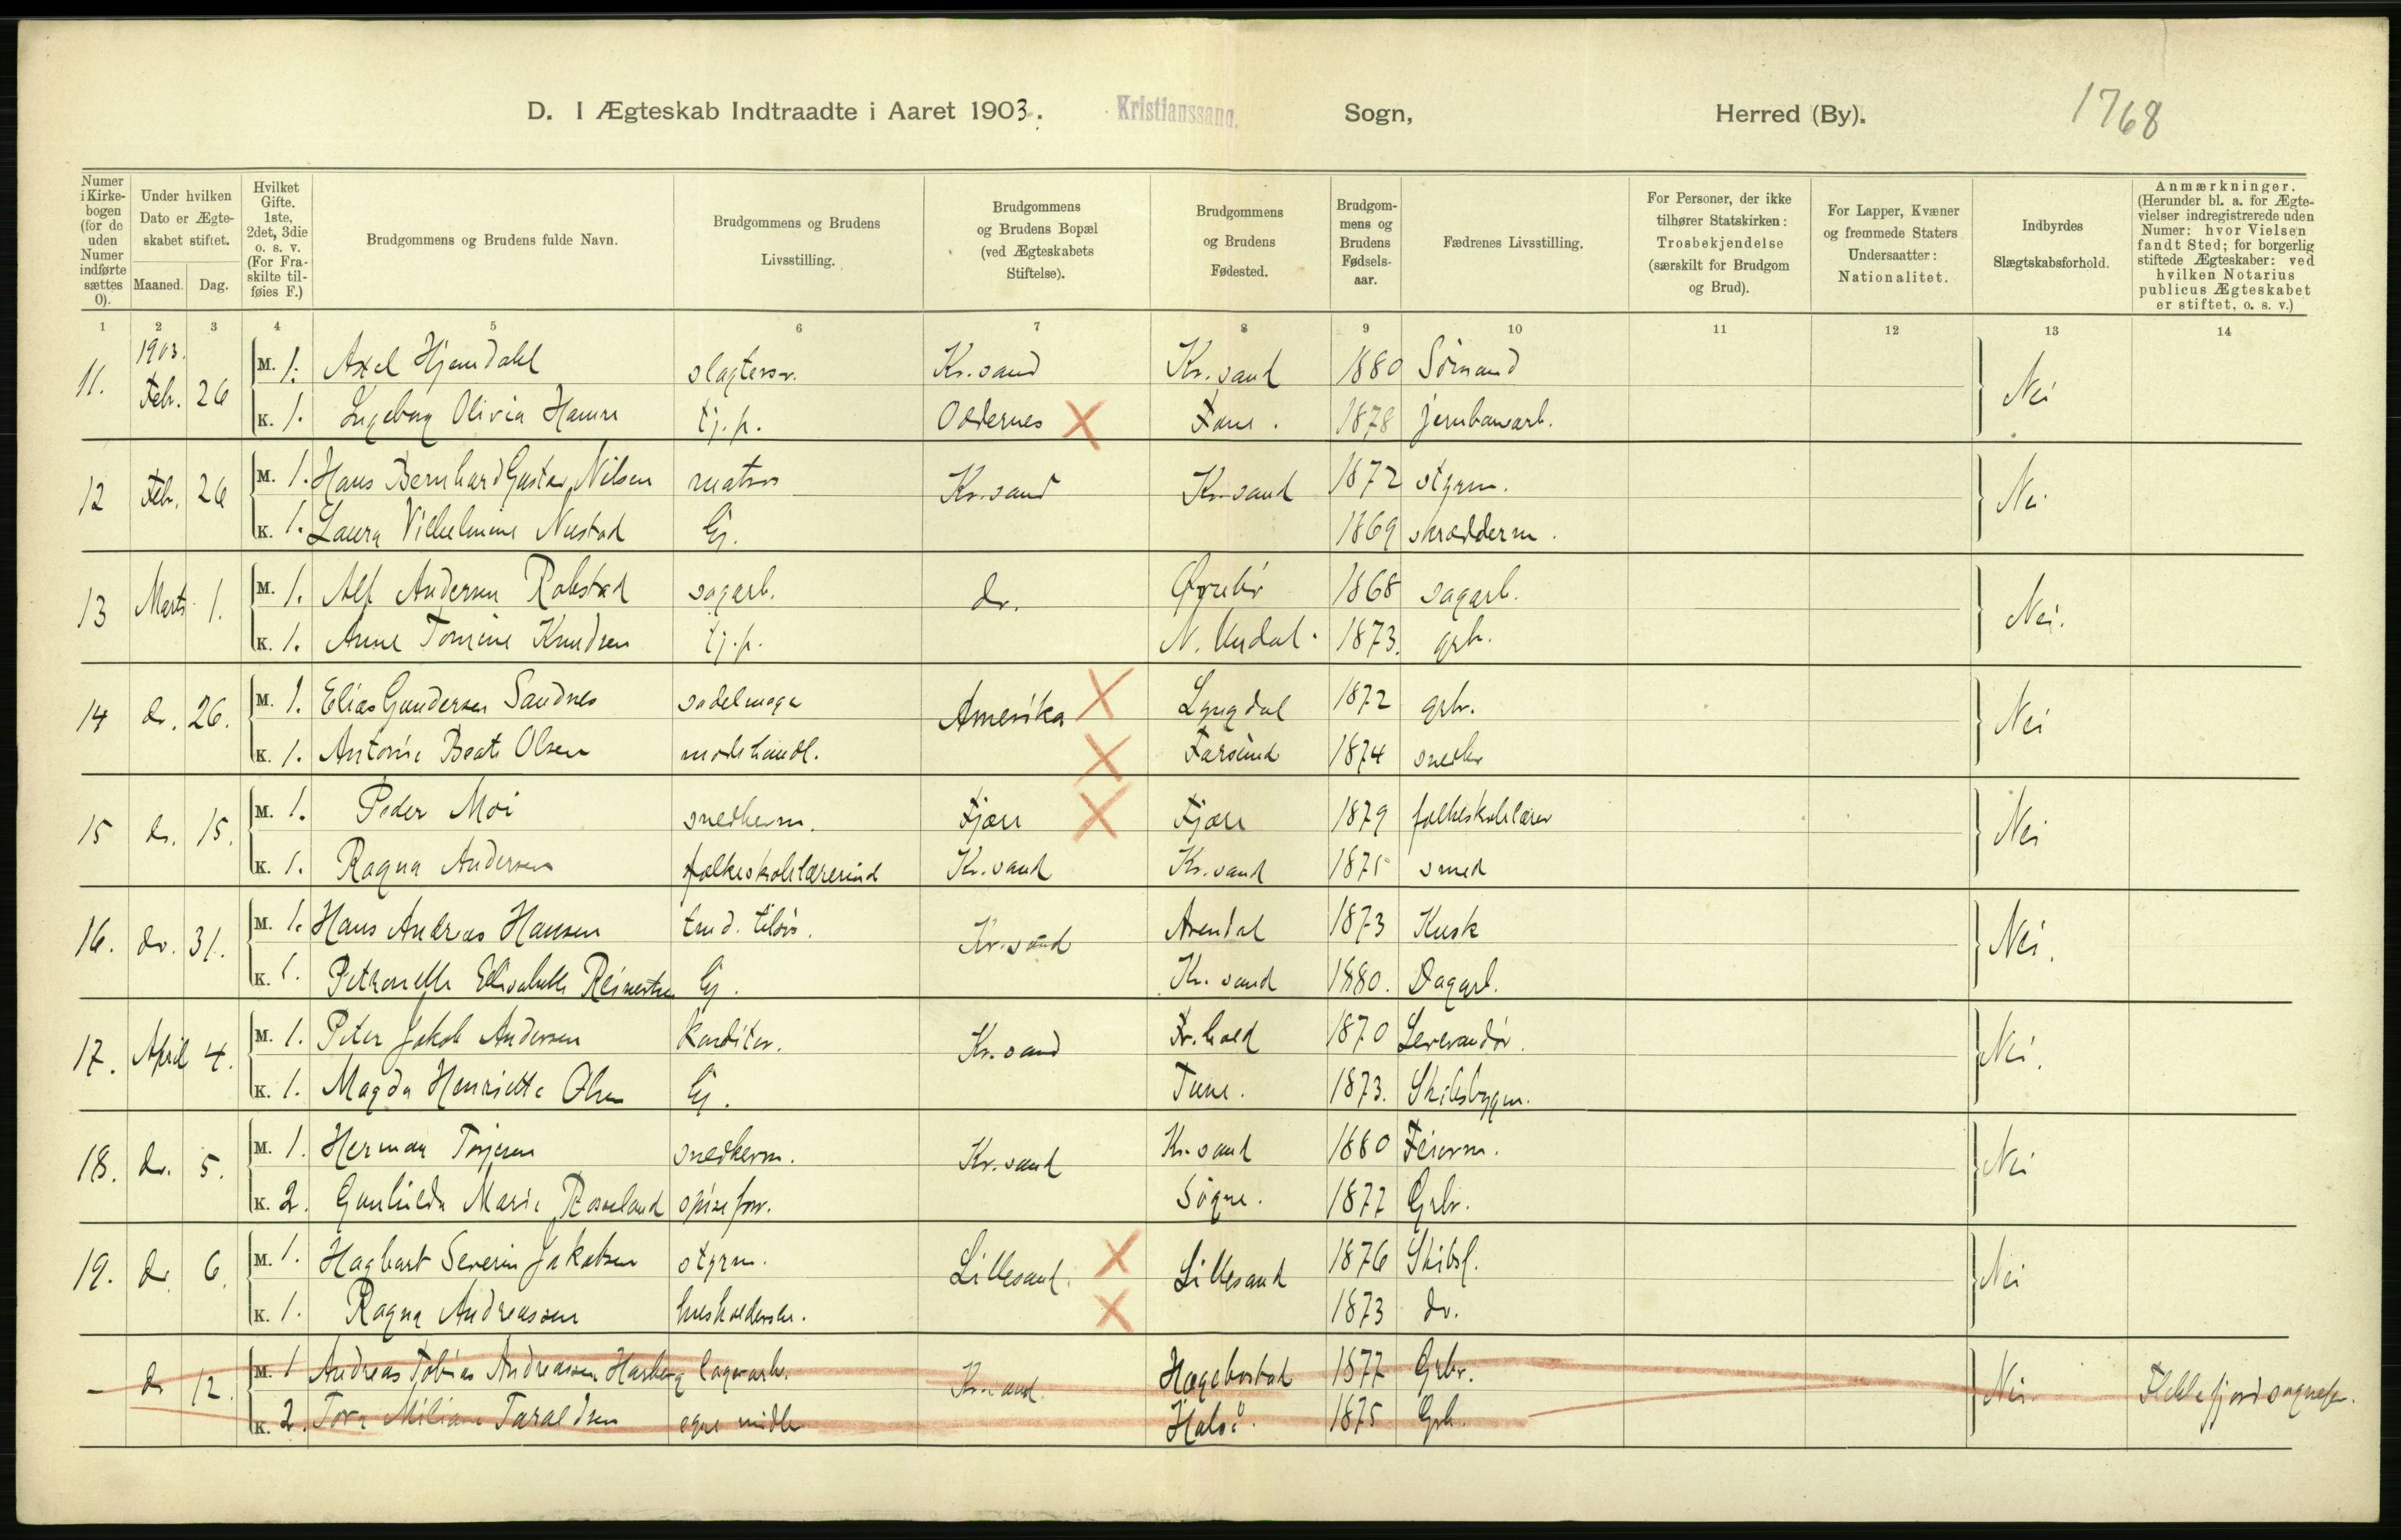 D. I Ægteskab Indtraadte i Aaret 1903. Kristianssand. Sogn, Herred (By). 1768
Numer i Kirkebogen (for de uden Numer indførte sættes 0).
Under hvilken Dato er Ægteskabet stiftet.
Maaned. Dag.
Hvilket Gifte. 1ste, 2det, 3die o. s. v. (For Fraskilte tilføies F.)
Brudgommens og Brudens fulde Navn.
Brudgommens og Brudens Livsstilling.
Brudgommens og Brudens Bopæl (ved Ægteskabets Stiftelse).
Brudgommens og Brudens Fødested.
Brudgommens og Brudens Fødselsaar.
Fædrenes Livsstilling.
For Personer, der ikke tilhører Statskirken: Trosbekjendelse (særskilt for Brudgom og Brud).
For Lapper, Kvæner og fremmede Staters Undersaatter: Nationalitet.
Indbyrdes Slægtskabsforhold.
Anmærkninger. (Herunder bl. a. for Ægtevielser indregistrerede uden Numer: hvor Vielsen fandt Sted; for borgerlig stiftede Ægteskaber: ved hvilken Notarius publicus Ægteskabet er stiftet, o. s. v.)
1 2 3 4 5 6 7 8 9 10 11 12 13 14
1903.
11. Febr. 26 M. 1. Axel Hjemdahl slagtersv. Kr.sand Kr.sand 1880 Sømand Nei
K. 1. Ingeborg Olivia Hamre tj.p. Oddernes Fane. 1878 jernbanearb.
12 Feb. 26 M. 1. Hans Bernhard Gustav Nilsen matros Kr.sand Kr.sand 1872 styrm. Nei
K. 1. Laura Vilhelmine Nustad Ej. 1869 skrædderm.
13 Marts 1. M. 1. Alf Andersen Rabstad sagarb. do. Øvrebø 1868 sagarb. Nei.
K. 1. Anne Tomine Knudsen tj.p. N. Undal. 1873. grb.
14 do. 26. M. 1. Elias Gundersen Sandnes sadelmager Amerika Lyngdal 1872 gbr. Nei
K. 1. Antonie Beate Olsen modehandl. Farsund 1874 snedker
15 do. 15. M. 1. Peder Moi snedkerm. Fjære Fjære 1879 folkeskolelærer Nei
K. 1. Ragna Andersen folkeskolelærerind Kr.sand Kr.sand 1875 smed
16. do. 31. M. 1. Hans Andreas Hansen Kr.sand Arendal 1873 Kusk Nei.
K. 1. Petronelle Elisabeth Reinertsen Ej. Kr.sand 1880. Dagarb.
17. April 4. M. 1. Peter Jakob Andersen Konditor. Kr.sand Fr.hald 1870 Leverandør. Nei.
K. 1. Magda Henriette Olsen Ej. Tune. 1873. Skibsbygm.
18. do. 5. M. 1. Herman Torjesen snedkerm. Kr.sand Kr.sand 1880 Feierm. Nei
K. 2. Gunhilda Marie Roseland spisefor. Søgne. 1877 Grbr.
19. do 6. M. 1. Hagbart Severin Jakobsen styrm. Lillesand. Lillesand 1876 Skibsf. Nei
K. 1. Ragna Andreassen husholdersk. 1873 do.
– do 12. M. 1 Andreas Tobias Andreassen lagerarb. Kr.sand. Hægebostad 1877 Grbr. Nei. Flekkefjord sognepr.
K. 2. Tora Miliane Taraldsen egne midler Halså. 1875 Grb.